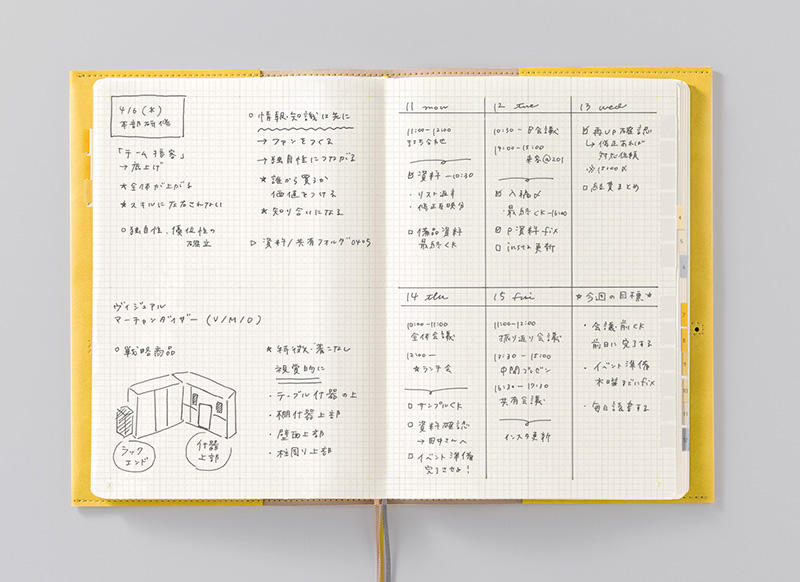 4/6（水）
本部研修
「チーム接客」
→底上げ
★全体が上がる
★スキルに左右されない
○独自性・優位性の
確立
○情報・知識は先に
→ファンをつくる
→独自性につながる
★誰から買うか
価値をつける
★知り合いになる
▷資料/共有フォルダ0405
ヴィジュアル
マーチャンダイザー（V/M/D）
○戦略商品
ラック
エンド
什器
上部
★特徴・着こなし
視覚的に
・テーブル什器の上
・棚什器上部
・壁面上部
・柱周り上部
11 mon
11:00-12:00
打ち合わせ
資料-10:30
・リスト返却
・修正反映分
□備品資料
最終CK
12 tue
10:30- P会議
14:00-15:00
来客@201
入稿〆
・最終CK-16:00
P資料fix
□insta更新
13 wed
再UP確認
↳修正あれば
対応依頼
※15:00〆
□点集まとめ
14 thu
10:00-11:00
全体会議
12:00-
★ランチ会
□サンプルCK
□資料確認
→田中さんへ
□イベント準備
完了させよ!
15 fri
11:00-12:00
振り返り会議
13:30-15:00
中間プレゼン
16:30-17:10
共有会議
インスタ更新
★今週の目標★
・会議前CK
前日に完了する
・イベント準備
木曜までにfix
・毎日読書する
4
5
6
7
8
9
10
11
12